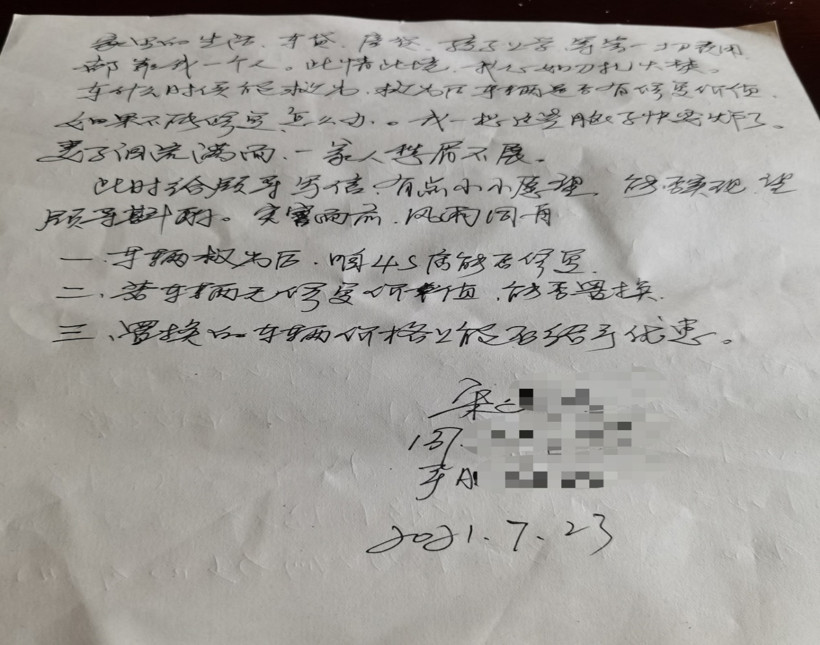 家里的生活、车贷、房贷、孩子上学等等一切费用
都靠我一个人。此情此境,我心如刀扎火燎。
车什么时候能救出,救出后车辆是否有修复价值,
如果不能修复怎么办。我一想这些脑子快要炸了。
妻子泪流满面,一家人愁眉不展。
此时给顾哥写信,有点小小愿望,能否实现,望
顾哥斟酌。灾害面前,风雨同舟
一、车辆救出后,咱4S店能否修复
二、若车辆无修复价值,能否置换
三、置换的车辆价格上能否给予优惠。
宋
157.
豫A
2021.7.23